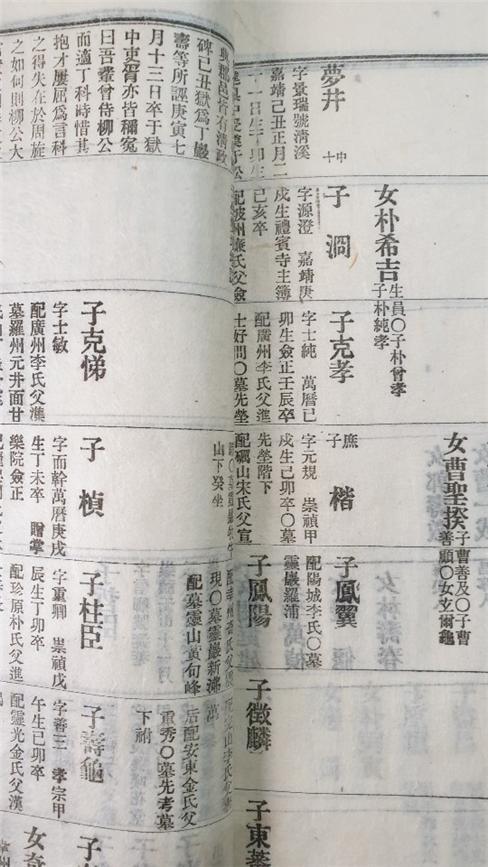 夢井 中十
字景瑞號清溪
嘉靖己丑正月二
十一日生丁卯生
女朴希吉 生員〇子朴曾孝
子朴純孝
子 澗
字源澄 嘉靖庚
戌生禮賓寺主簿
己亥卒
配坡州廉氏父僉
子克孝
字士純 萬曆己
卯生僉正壬辰卒
配廣州李氏父進
士好問〇墓先塋
女曹聖揆 子曹善及〇子曹
善顧〇女玄爾龜
庶子 楷
字元規 崇禎甲
戌生己卯卒〇墓
先塋階下
配礪山宋氏父宣
子鳳翼
配陽城李氏〇墓
靈巖羅浦
子鳳陽
子徵麟
子東
典職邑皆有清政
碑己丑獄爲丁巖
壽等所誣庚寅七
月十三日卒于獄
中吏胥亦皆稱寃
曰吾輩曾侍柳公
而適丁科時惜其
抱才屢屈爲言科
之得失在於周旋
之如何則柳公大
子克悌
字士敏
配廣州李氏父
墓羅州元井面甘
山下癸坐
子 楨
字而幹萬曆庚戌
生丁未卒 贈掌
樂院僉正
現〇墓靈巖新沸
配墓靈山黃句峰
子柱臣
字重卿 崇禎戊
辰生丁卯卒
配珍原朴氏父進
后配安東金氏父
重秀〇墓先考墓
下祔
子壽龜
字善三 孝宗甲
午生己卯卒
配靈光金氏父漢
女奇